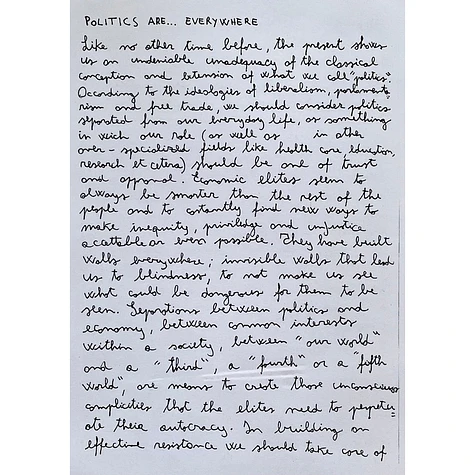 POLITICS ARE... EVERYWHERE
Like no other time before, the present shows
us an undeniable unadequacy of the classical
conception and extension of what we call "politics".
According to the ideologies of liberalism, parlamenta-
rism and free trade, we should consider politics
separated from our everyday life, as something
in wich our role (as well as in other
over-specialized fields like health care, education,
research et cetera) should be one of trust
and approval. Economic elites seem to
always be smarter than the rest of the
people and to costantly find new ways to
make inequity, priviledge and unjustice
accettable or even possible. They have built
walls everywhere; invisible walls that lead
us to blindness, to not make us see
what could be dangerous for them to be
seen. Separations between politics and
economy, between common interests
within a society, between "our world"
and a "third", a "fourth" or a "fifth
world", are means to create those unconscious
complicities that the elites need to perpetu=
ate their autocracy. In building an
effective resistance we should take care of